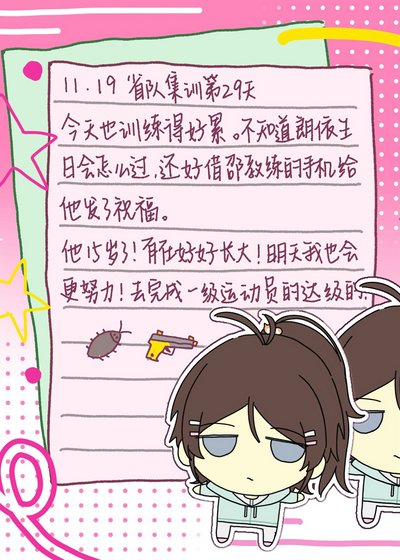 11.19 省队集训第29天
今天也训练得好累。不知道朗依生
日会怎么过,还好借邵教练的手机给
他发了祝福。
他15岁了!有在好好长大!明天我也会
更努力!去完成一级运动员的达级的